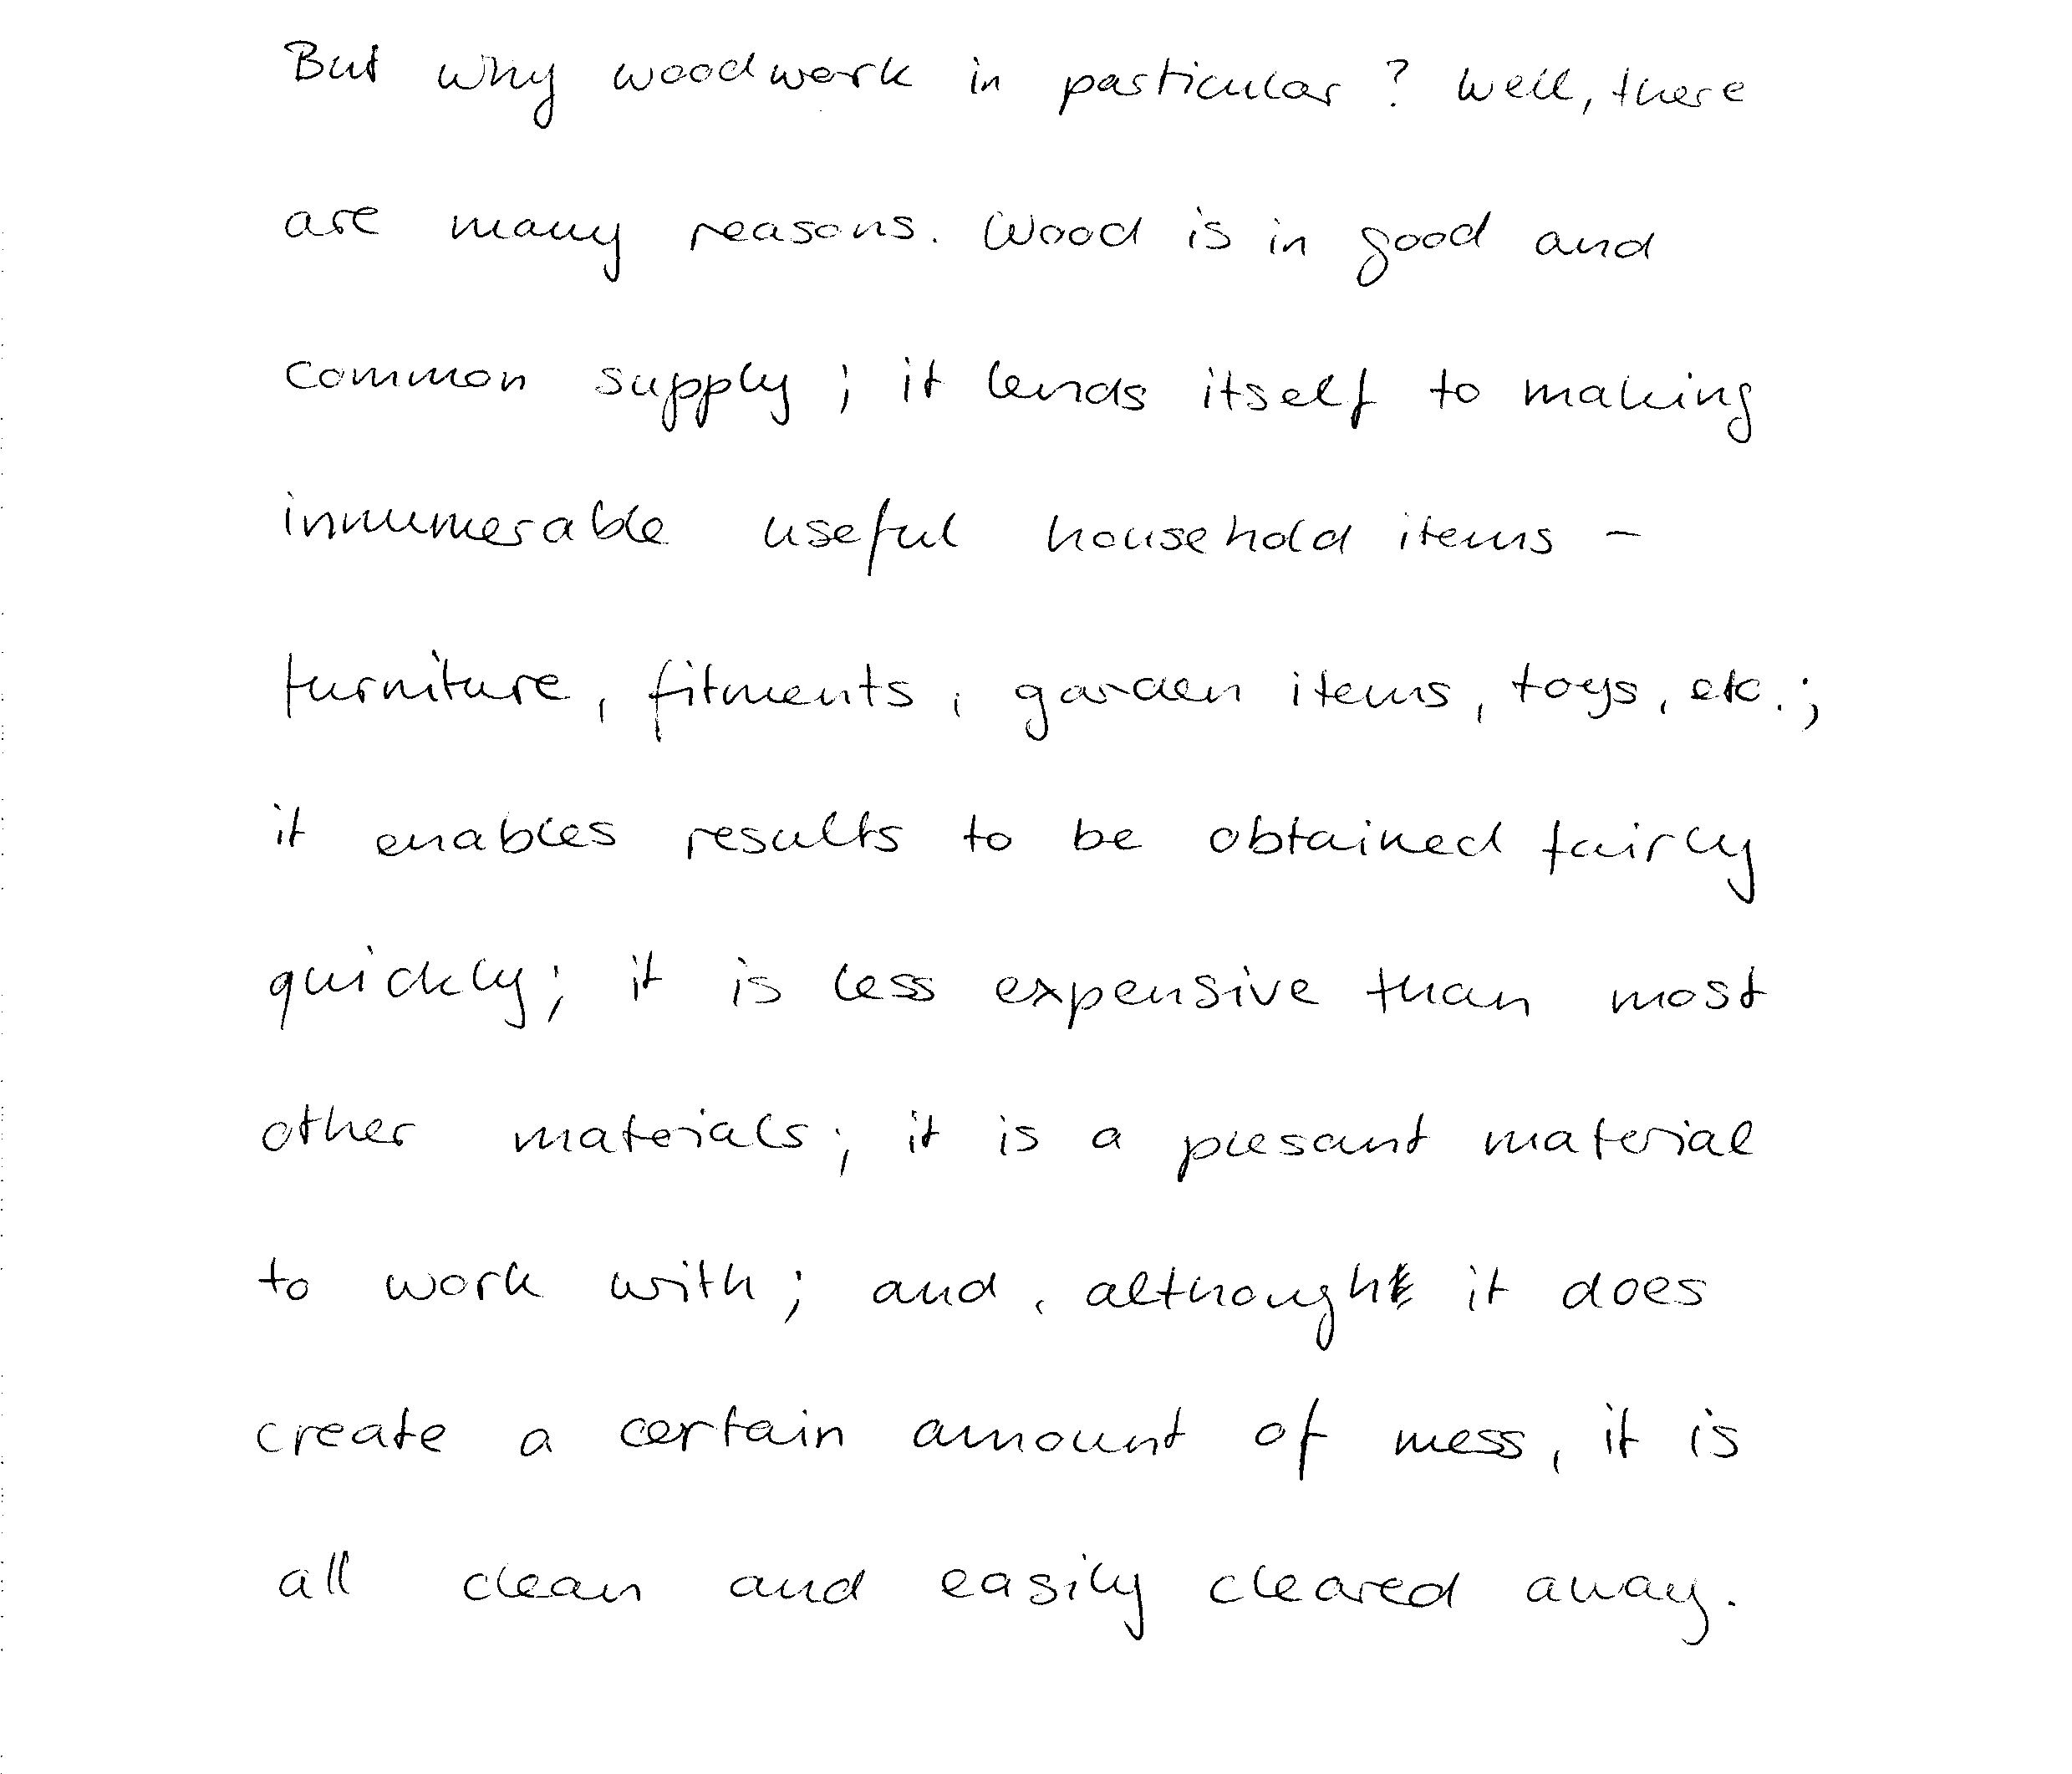 But why woodwork in particular? Well, there
are many reasons. Wood is in good and
common supply; it lends itself to making
innumerable useful household items -
furniture, fitments, garden items, toys, etc.;
it enables results to be obtained fairly
quickly; it is less expensive than most
other materials; it is a plesant material
to work with; and, although it does
create a certain amount of mess, it is
all clean and easily cleared away.